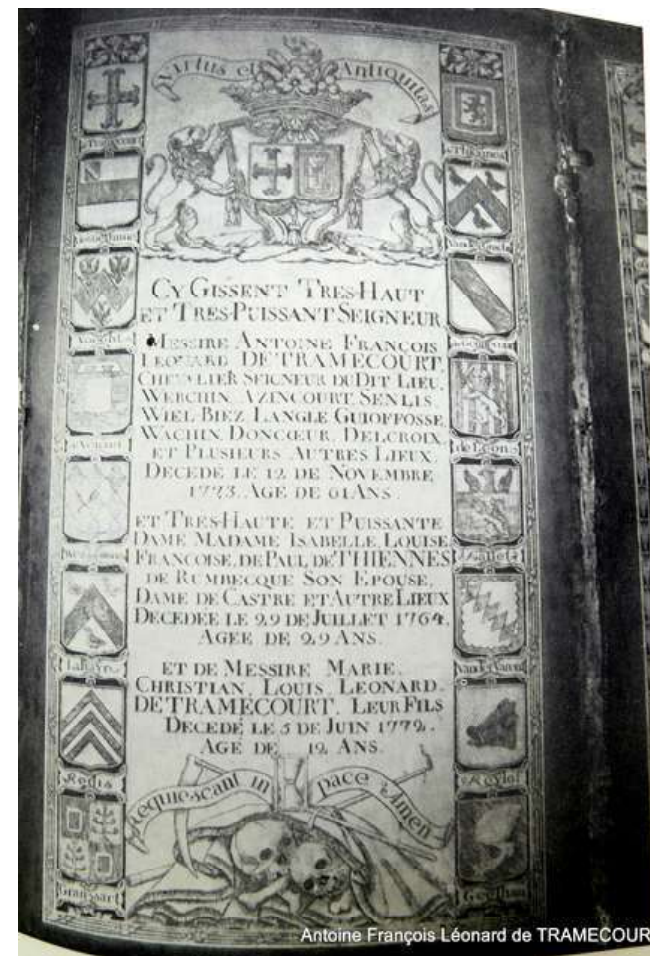 Virtus et Antiquitas
CY GISSENT TRES-HAUT
ET TRES-PUISSANT SEIGNEUR
MESSIRE ANTOINE FRANÇOIS
LEONARD DE TRAMECOURT
CHEVALIER SEIGNEUR DU DIT LIEU,
WERCHIN AZINCOURT SENLIS
WIEL BIEZ LANGLE GUIOFFOSSE
WACHIN, DONCŒUR, DELCROIX
ET PLUSIEURS AUTRES LIEUX
DECEDÉ LE 12 DE NOVEMBRE
1773. AGE DE 61 ANS.
ET TRES-HAUTE ET PUISSANTE
DAME MADAME ISABELLE LOUISE
FRANÇOISE, DE PAUL DE THIENNES
DE RUMBECQUE SON EPOUSE,
DAME DE CASTRE ET AUTRE LIEUX
DECEDÉE LE 29 DE JUILLET 1764,
AGEE DE 29 ANS.
ET DE MESSIRE MARIE,
CHRISTIAN, LOUIS, LEONARD,
DE TRAMECOURT, LEUR FILS
DECEDÉ LE 5 DE JUIN 1772.
AGE DE 12 ANS.
Requiescant in pace Amen
Lahaye
de Leons
Antoine François Léonard de TRAMECOUR